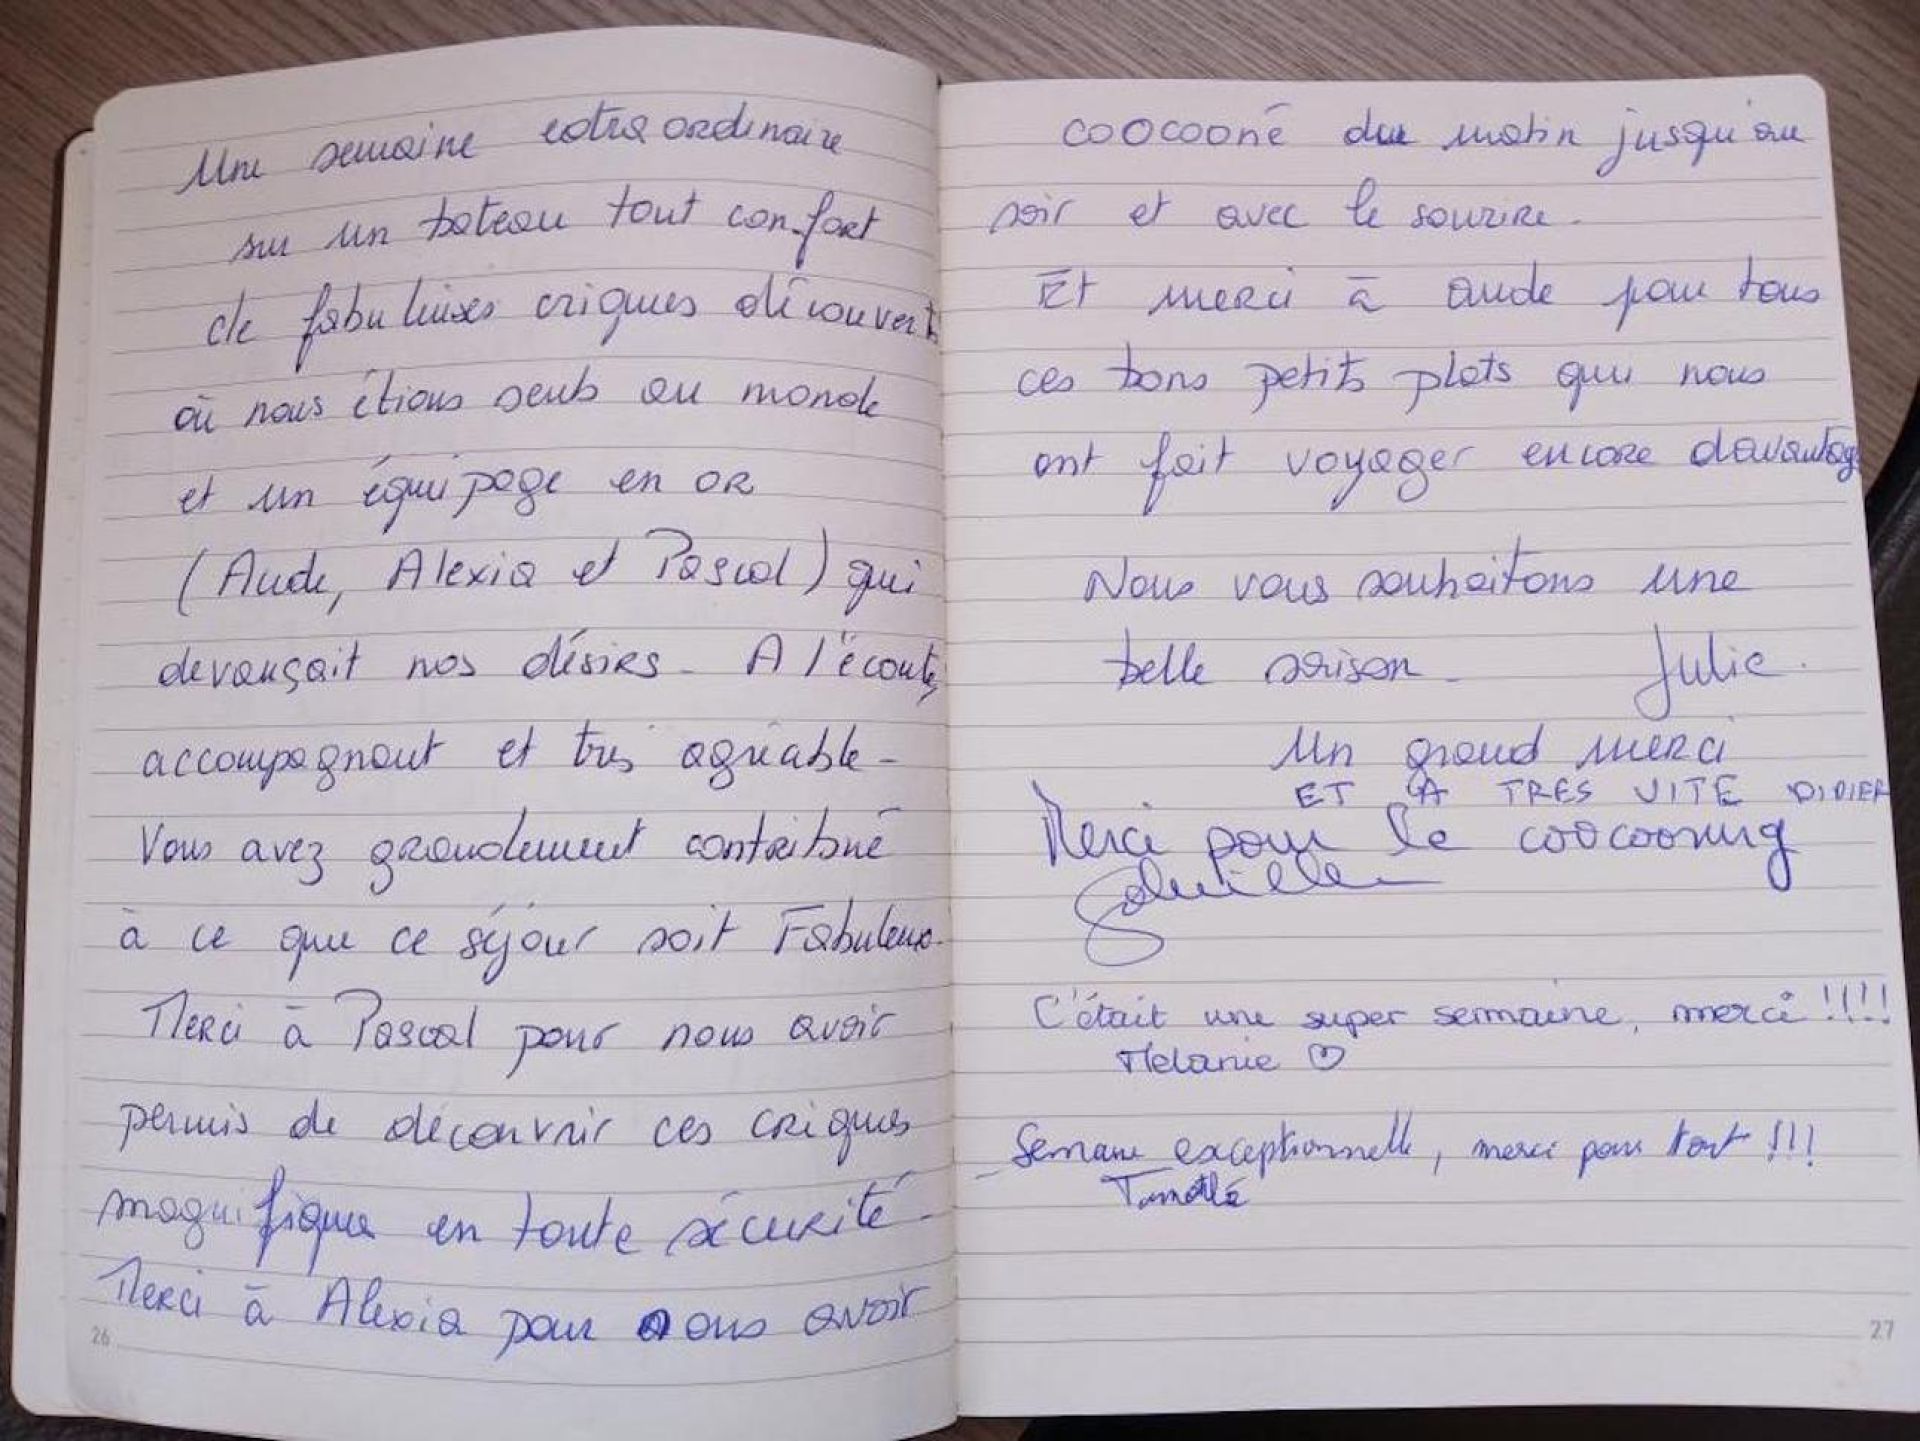 Une semaine extraordinaire
sur un bateau tout confort
de fabuleuses criques découvertes
où nous étions seuls au monde
et un équipage en OR
(Aude, Alexia et Pascal) qui
devançait nos désirs - A l'écoute,
accompagnant et très agréable -
Vous avez grandement contribué
à ce que ce séjour soit Fabuleux.
Merci à Pascal pour nous avoir
permis de découvrir ces criques
magnifiques en toute sécurité -
Merci à Alexia pour nous avoir
26
coocooné du matin jusqu'au
soir et avec le sourire.
Et merci à aude pour tous
ces bons petits plats qui nous
ont fait voyager encore davantage
Nous vous souhaitons une
belle saison - Julie.
Un grand merci
ET A TRÉS VITE DIDIER
Merci pour le coocooning
C'était une super semaine, merci !!!!
Mélanie ♡
Semaine exceptionnelle, merci pour tout !!!
Timothé
27